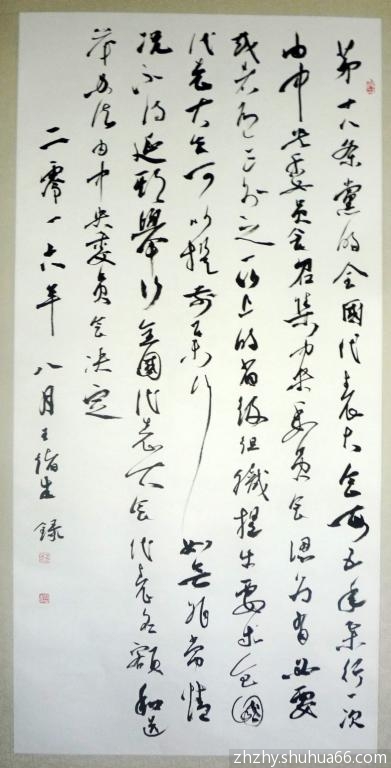 第十八条黨的全國代表大会每五年举行一次
由中央委员会召集中央委员会認为有必要
或者有三分之一以上的省级组織提出要求全國
代表大会可以提前举行如无非常情
况不得延期舉行全國代表大会代表名額和选
举办法由中央委員会决定
二零一六年八月王 生録
zhzhy.shuhua66.com